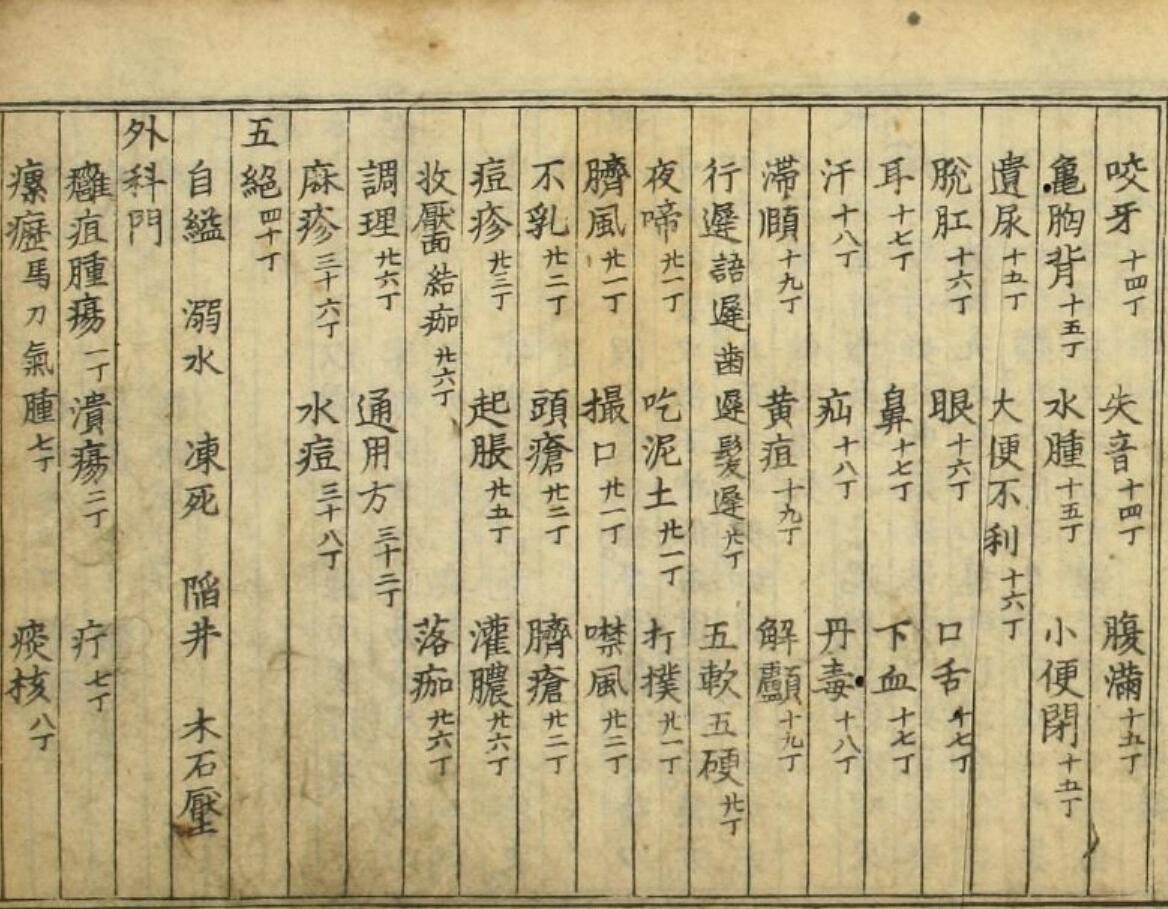 咬牙十四丁 失音十四丁 腹滿十五丁
龜胸背十五丁 水腫十五丁 小便閉十五丁
遺尿十五丁 大便不利十六丁
脫肛十六丁 眼十六丁 口舌十七丁
耳十七丁 鼻十七丁 下血十七丁
汗十八丁 疝十八丁 丹毒十八丁
滯頤十九丁 黃疸十九丁 解顱十九丁
行遲語遲齒遲髮遲廿丁 五軟五硬廿丁
夜啼廿一丁 吃泥土廿一丁 打撲廿一丁
臍風廿一丁 撮口廿一丁 噤風廿二丁
不乳廿二丁 頭瘡廿二丁 臍瘡廿二丁
痘疹廿三丁 起脹廿五丁 灌膿廿六丁
收靨面結痂廿六丁 落痂廿六丁
調理廿六丁 通用方三十二丁
麻疹三十六丁 水痘三十八丁
五絕四十丁
自縊 溺水 凍死 陷井 木石壓
外科門
癰疽腫瘍一丁 潰瘍二丁 疔七丁
瘰癧馬刀氣腫七丁 痰核八丁